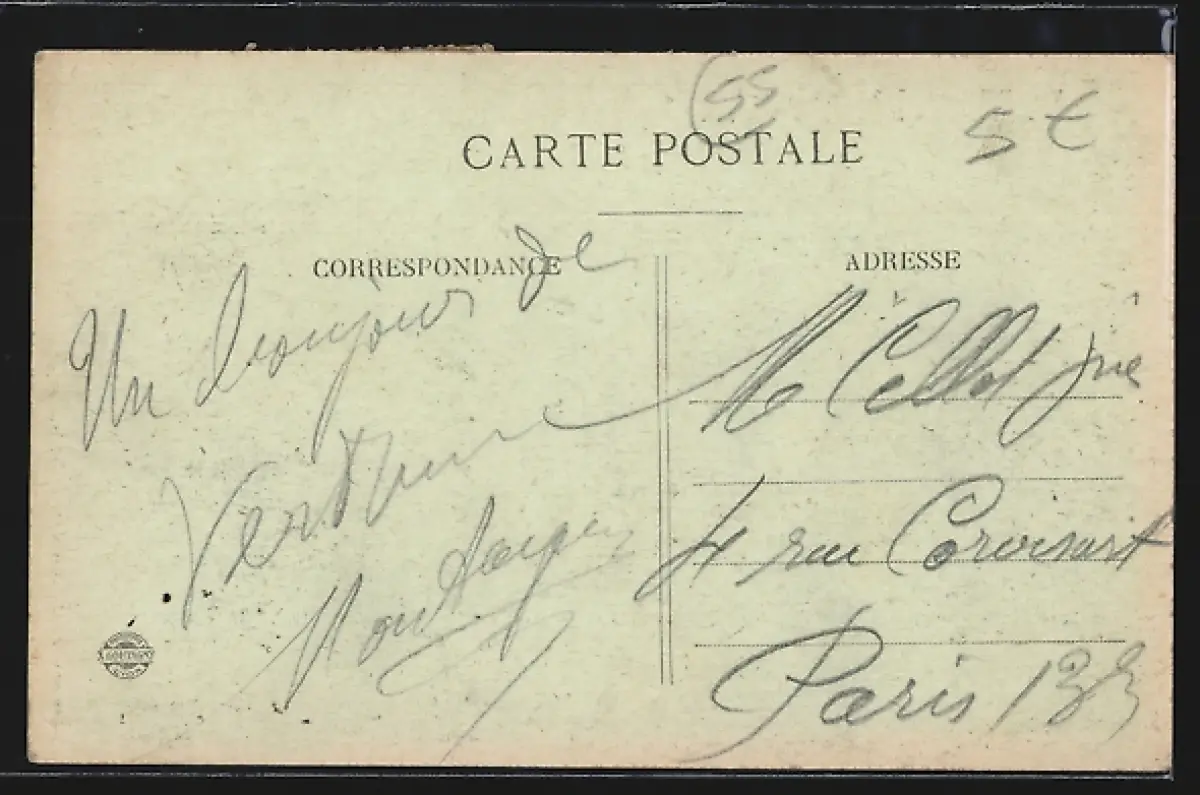 55
5 €
CARTE POSTALE
CORRESPONDANCE
ADRESSE
Un bonjour de
Verdun
M Cellot
4 rue Corvisart
Paris 13